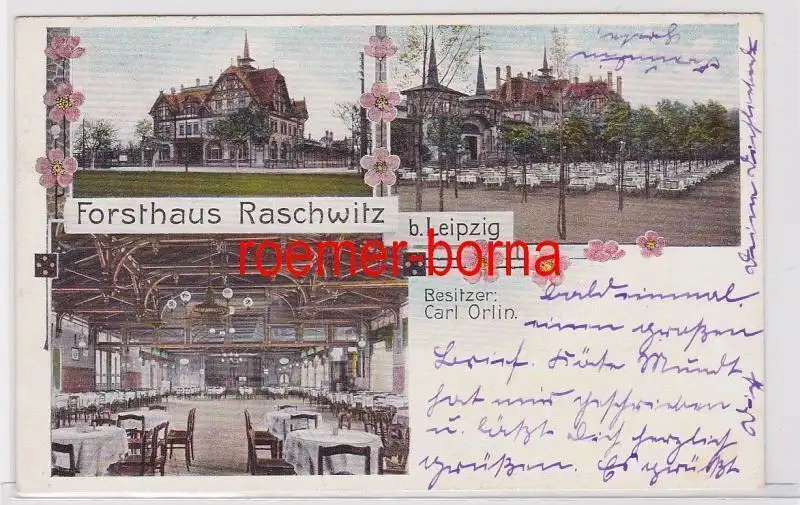 Forsthaus Raschwitz
b. Leipzig
roemer-borna
Besitzer:
Carl Orlin.
bald einmal
einen großen
Brief. Käte Mundt
hat mir geschrieben
u. läßt Dich herzlich
grüßen. Es grüßt
Dich
Deine